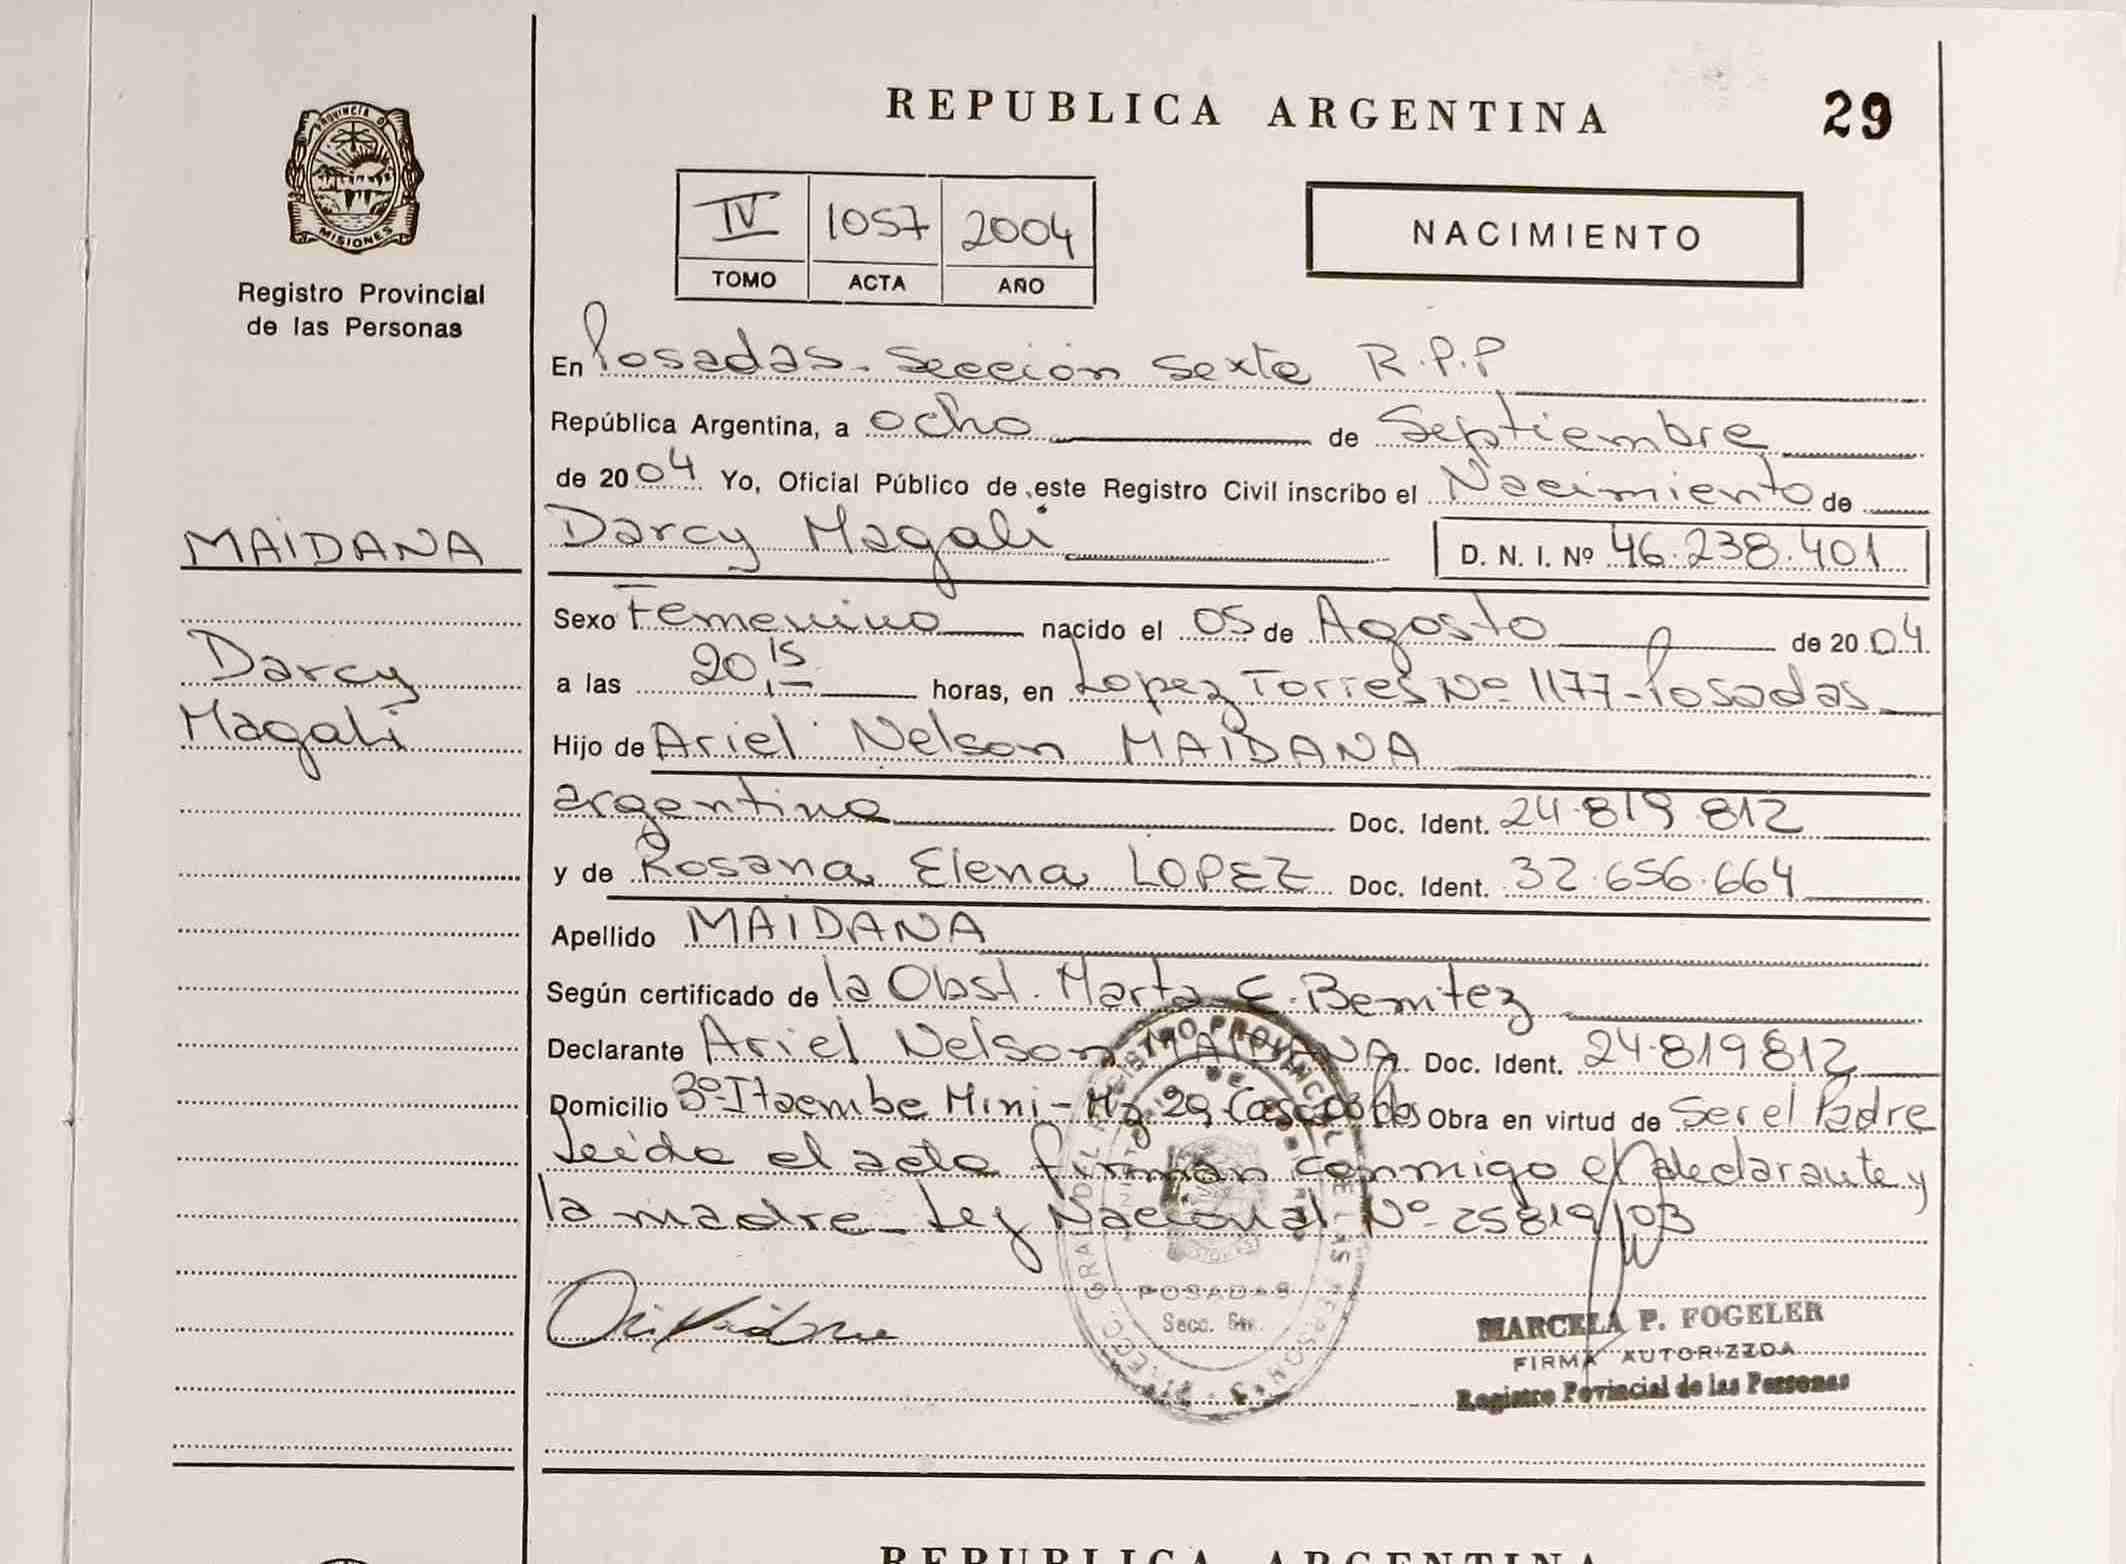 PROVINCIA D
MISIONES
Registro Provincial
de las Personas
REPUBLICA ARGENTINA
29
IV 1057 2004
TOMO ACTA AÑO
NACIMIENTO
En Posadas - Sección Sexta R.P.P
República Argentina, a ocho de Septiembre
de 2004 Yo, Oficial Público de este Registro Civil inscribo el Nacimiento de
MAIDANA
Darcy Magali D. N. I. Nº 46.238.401
Sexo Femenino nacido el 05 de Agosto de 2004
Darcy
a las 20,15 horas, en Lopez Torres Nº 1177 - Posadas
Magali
Hijo de Ariel Nelson MAIDANA
argentino Doc. Ident. 24.819.812
y de Rosana Elena LOPEZ Doc. Ident. 32.656.664
Apellido MAIDANA
Según certificado de la Obst. Marta E. Benitez
Declarante Ariel Nelson MAIDANA Doc. Ident. 24.819812
Domicilio Itaembe Mini - Mz 29 Casa Pdas Obra en virtud de Ser el Padre
Leida el acta firman conmigo el declarante y
la madre - Ley Nacional Nº 25819/03
POSADAS
Secc.
MARCELA P. FOGELER
FIRMA AUTORIZZDA
Registro Povincial de las Personas
REPUBLICA ARGENTINA